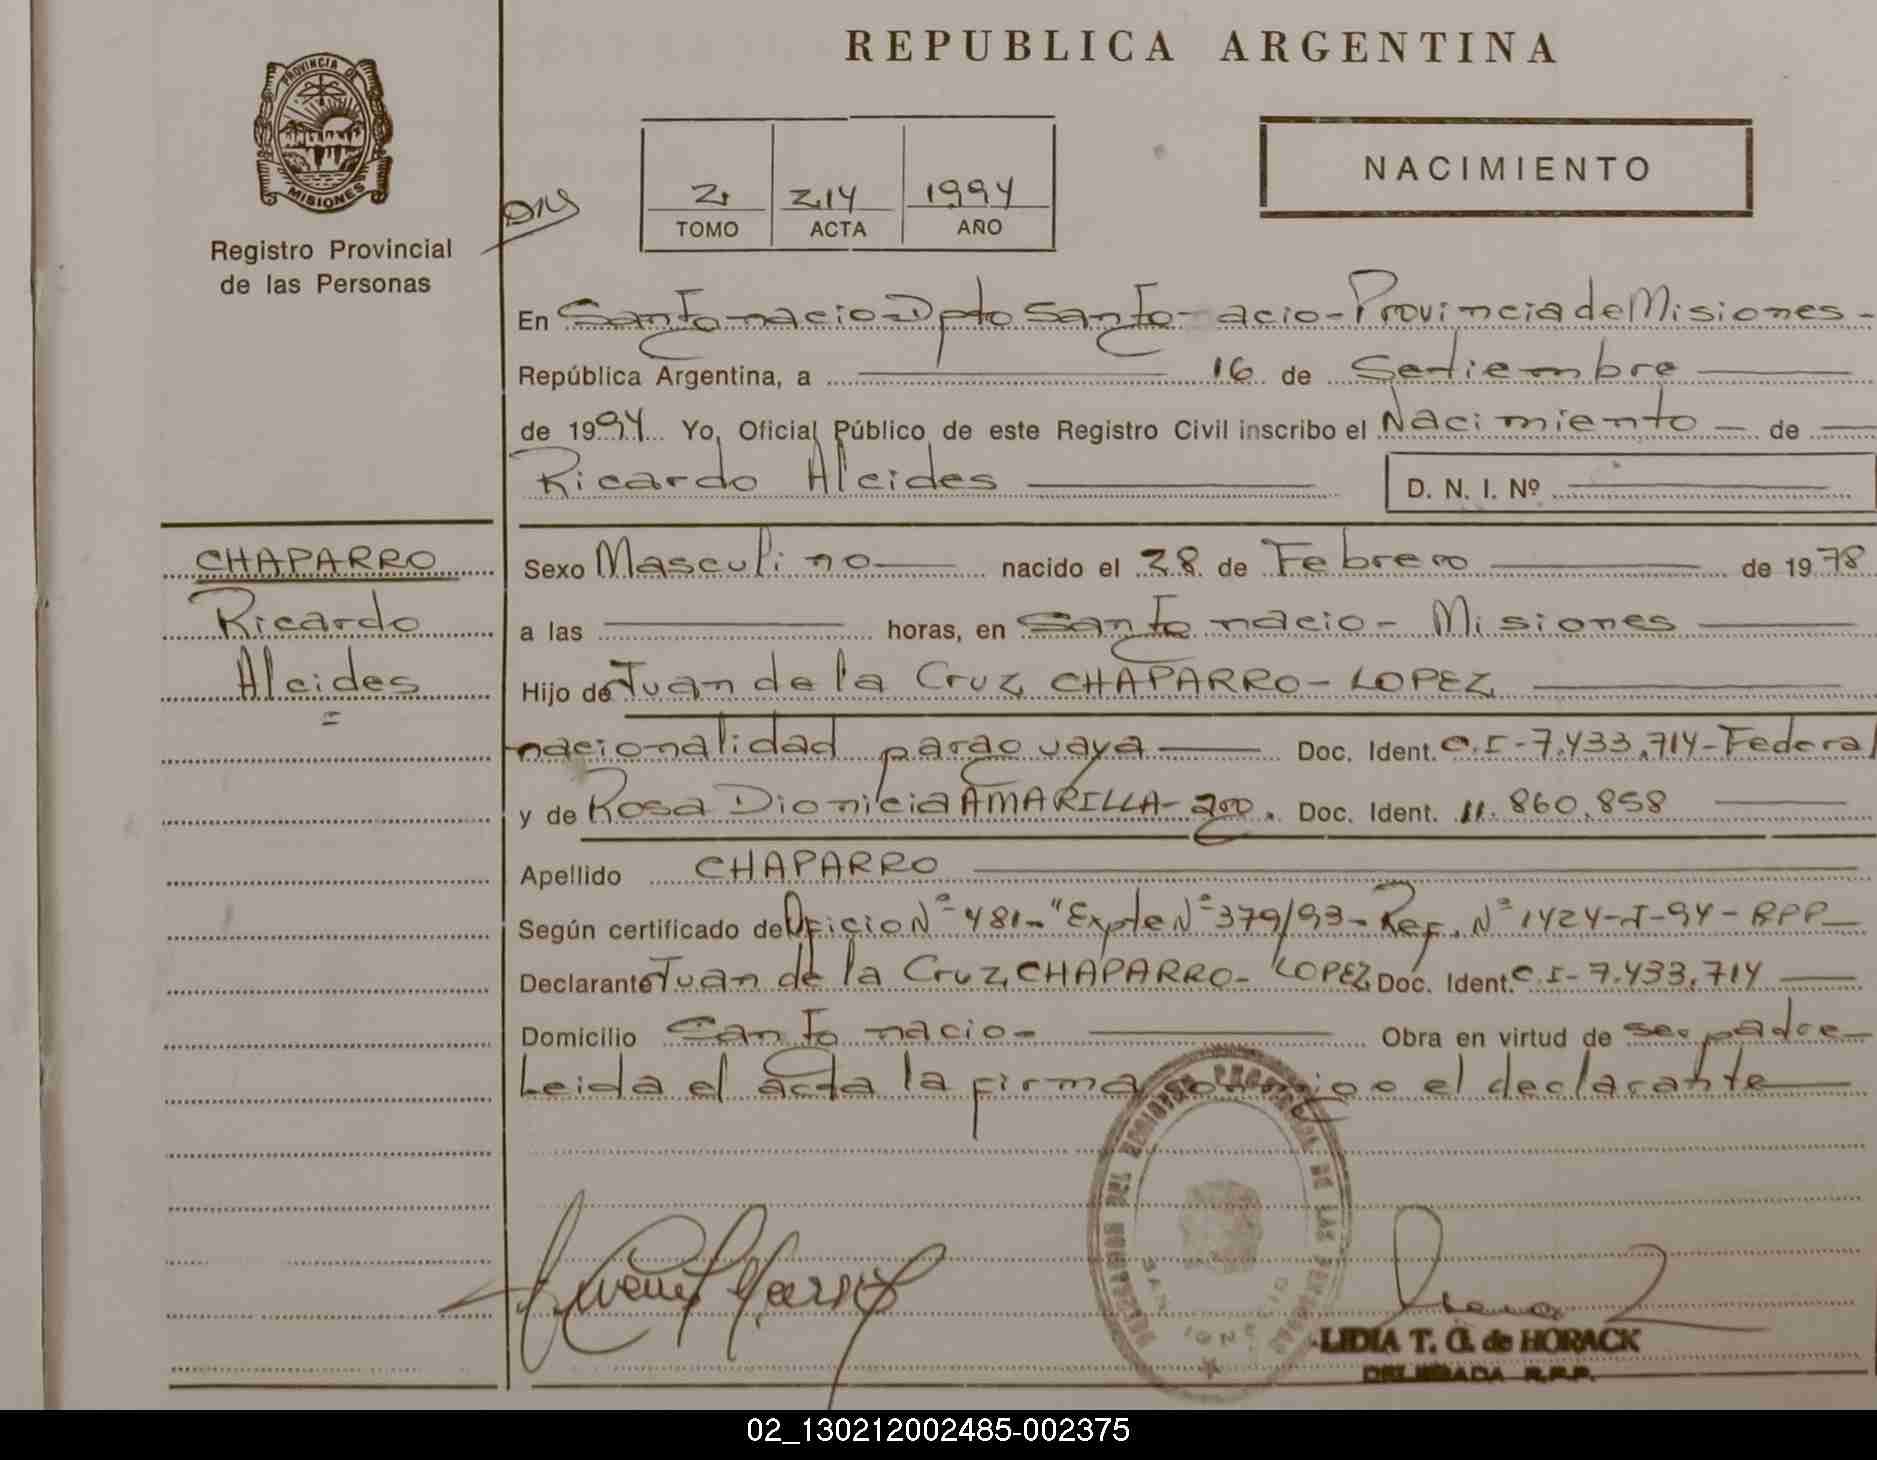 REPUBLICA ARGENTINA
PROVINCIA DE
MISIONES
Registro Provincial
de las Personas
NACIMIENTO
2 214 1994
TOMO ACTA AÑO
En San Ignacio Dpto San Ignacio - Provincia de Misiones -
República Argentina, a 16 de Setiembre
de 1994 Yo, Oficial Público de este Registro Civil inscribo el Nacimiento - de
Ricardo Alcides D. N. I. Nº
CHAPARRO
Ricardo
Alcides
Sexo Masculino nacido el 28 de Febrero de 1978
a las horas, en San Ignacio - Misiones
Hijo de Juan de la Cruz CHAPARRO - LOPEZ
nacionalidad paraguaya Doc. Ident. C.I - 7.433.714 - Federal
y de Rosa Dionicia AMARILLA - Doc. Ident. 11.860.858
Apellido CHAPARRO
Según certificado de Oficio Nº 481 - "Expte Nº 379/93 - Ref. Nº 1424-I-94 - RPP -
Declarante Juan de la Cruz CHAPARRO - LOPEZ Doc. Ident. C.I - 7.433.714
Domicilio San Ignacio - Obra en virtud de ser padre -
Leida el acta la firma conmigo el declarante
LIDIA T. G. de HORACK
DELEGADA R.P.P.
02_130212002485-002375